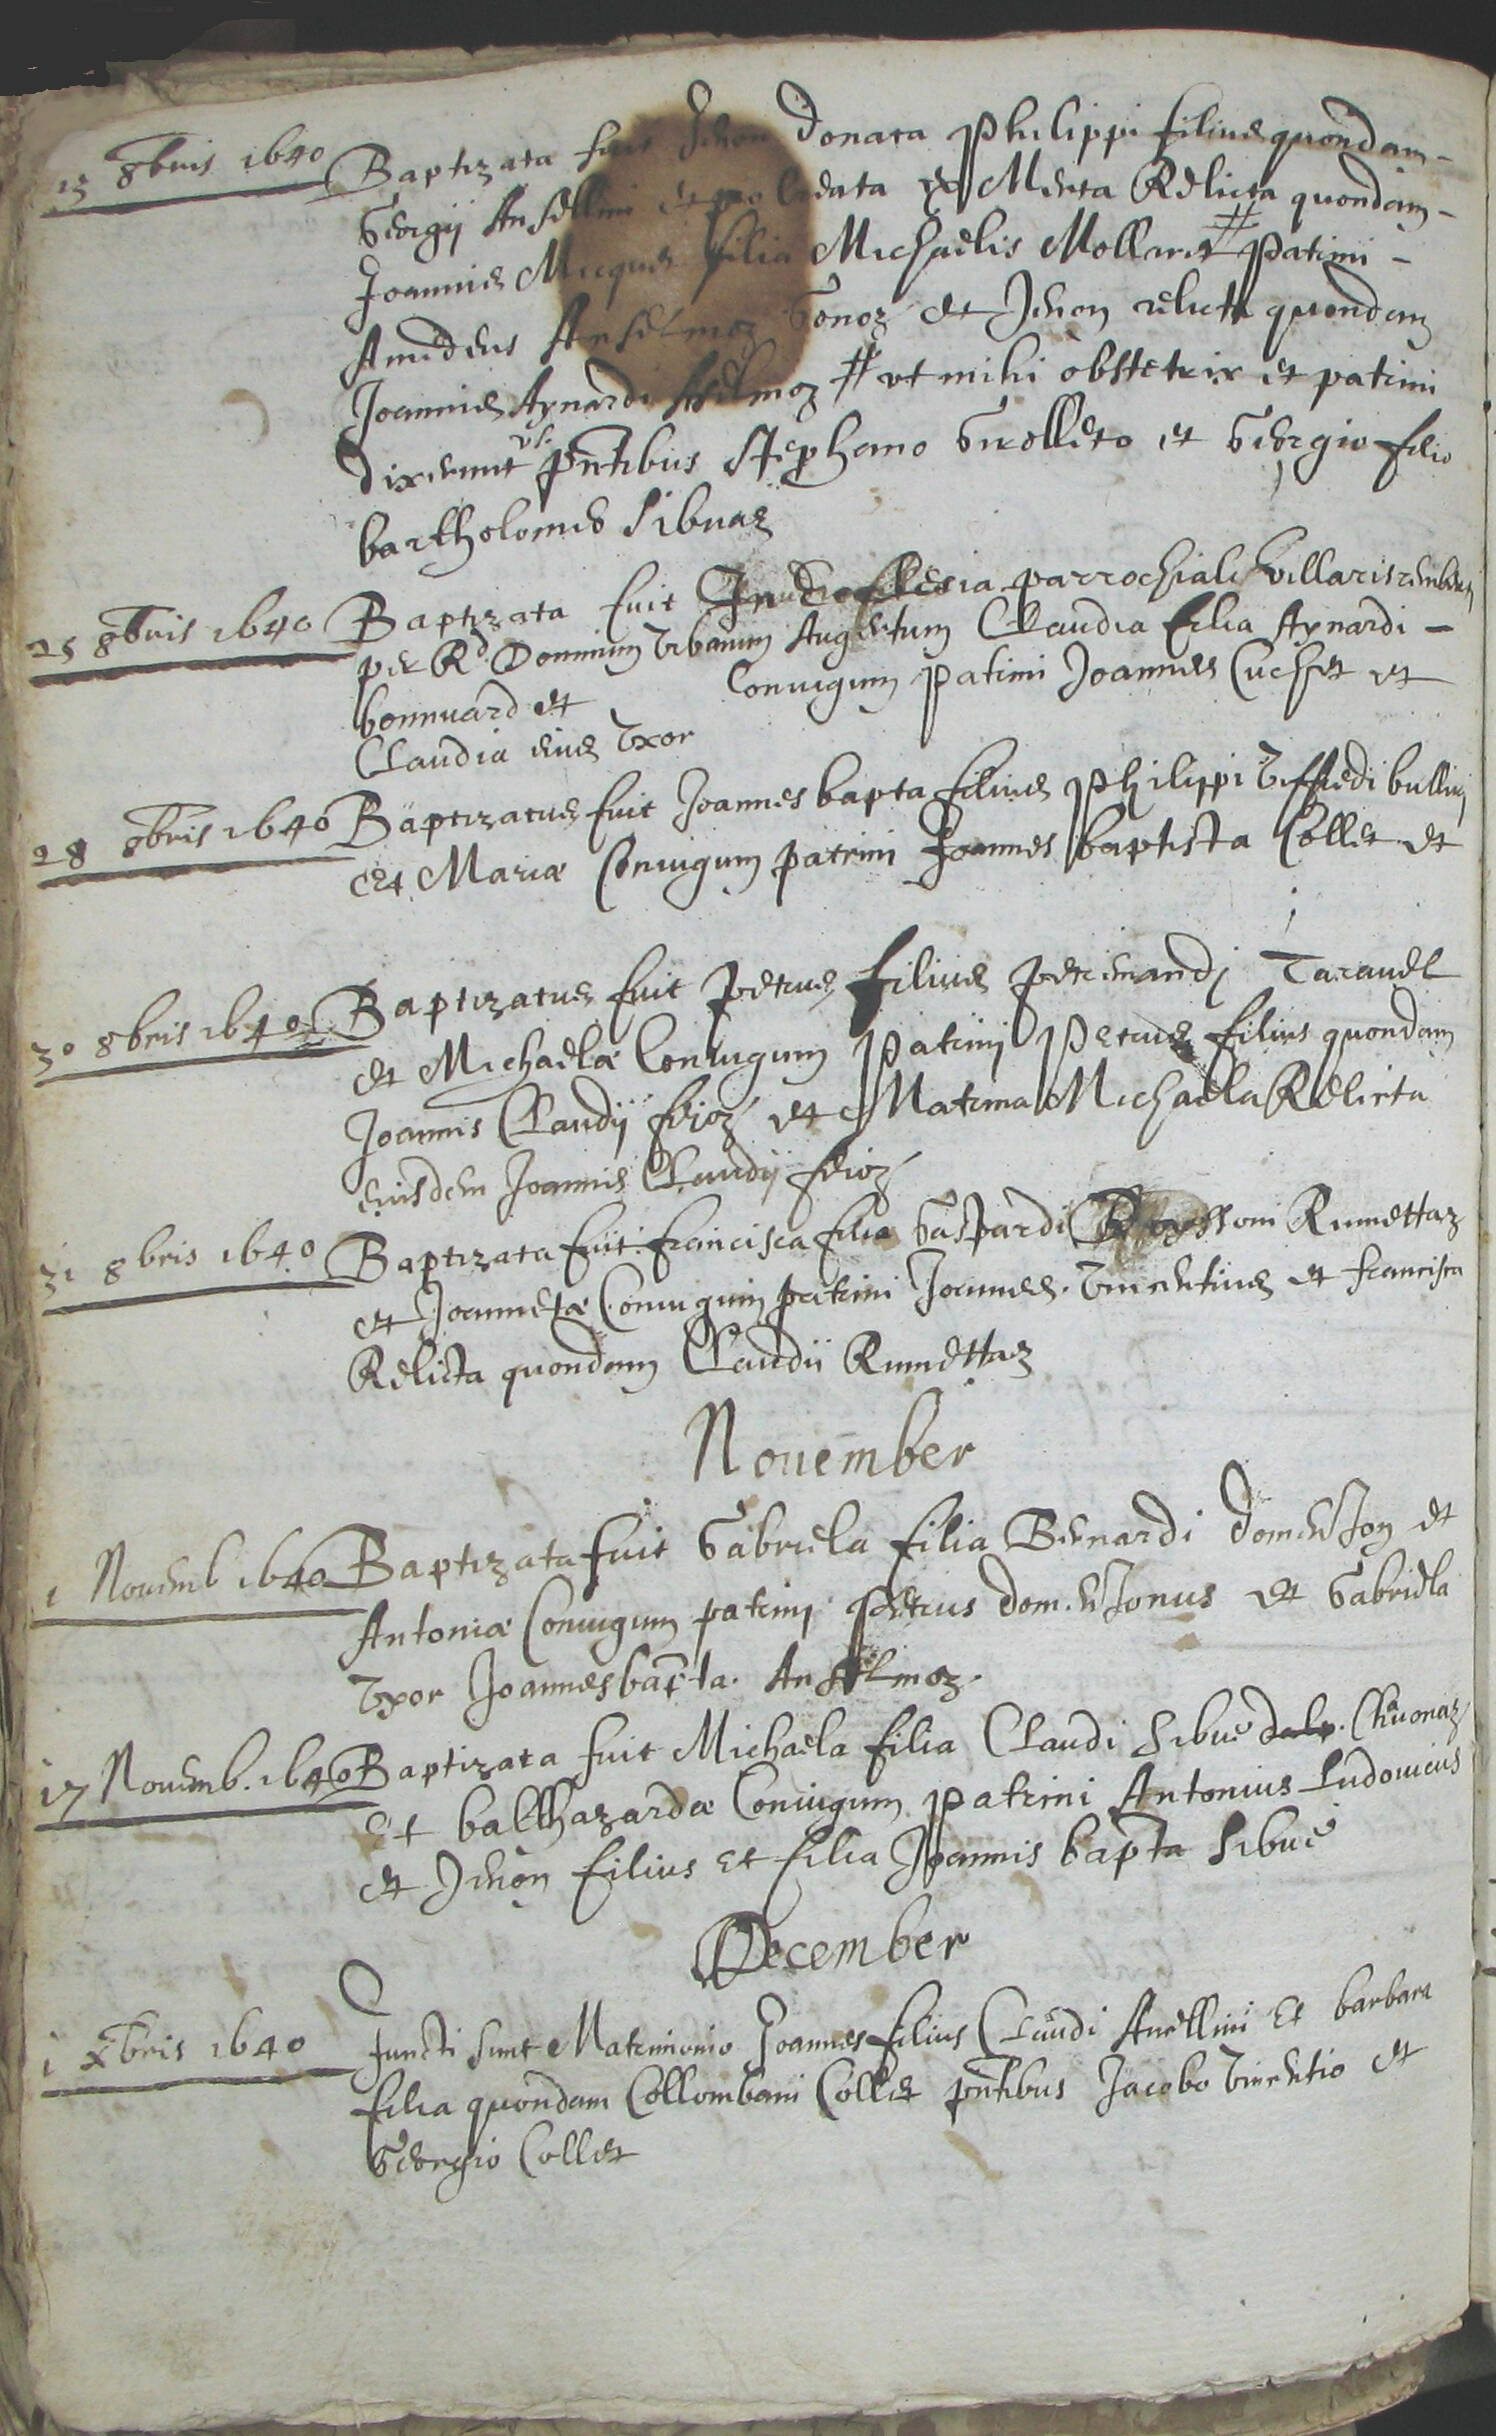 8bris 1640 Baptizata fuit Jenon donata Philippi filius quondam -
Georgij Ansellmi et procreata ex Menta Relicta quondam -
Joannis Micques filia Michaelis Mollaret # Patrini -
Amedeus Anselmoz Gonoz et Jenon relicta quondam
Joannis Aynardi Anselmoz # ut mihi obstetrix et patrini
dixerunt pntibus Stephano Grolleto et Georgio filio
bartholomei Sibuaz
25 8bris 1640 Baptizata fuit Ecclesia parrochiali
per Rd Dominum Urbanum Augertum Claudia filia Aynardi -
bonnuard et Coniugum patrini Joannes Cuchet et
Claudia eius Uxor
28 8bris 1640 Baptizatus fuit Joannes bapta filius Philippi
et Mariæ Coniugum patrini Joannes baptista Collet et
30 8bris 1640 Baptizatus fuit Petrus filius petremandi Taravel
et Michaelæ Coniugum Patrini Petrus filius quondam
Joannis Claudij fejoz et Matrina Michaela Relicta
eiusdem Joannis Claudij fejoz
31 8bris 1640 Baptizata fuit francisca filia Gaspardi Rumettaz
et Joannetæ Coniugum patrini Joannes Vincentius et francisca
Relicta quondam Claudii Rumettaz
November
1 Novemb 1640 Baptizata fuit Gabriela filia Bernardi domenjon et
Antoniæ Coniugum patrini petrus domenjonus et Gabriella
Uxor Joannesbapta. Anselmoz.
17 Novemb. 1640 Baptizata fuit Michaela filia Claudi Sibue Chavonaz
et balthazardæ Coniugum patrini Antonius Ludovicus
et Jenon filius et filia Joannis bapta Sibue
December
1 Xbris 1640 Juncti sunt Matrimonio Joannes filius Claudi Anellini Et barbara
filia quondam Collombani Collet pntibus Jacobo Vincentio et
Georgio Collet